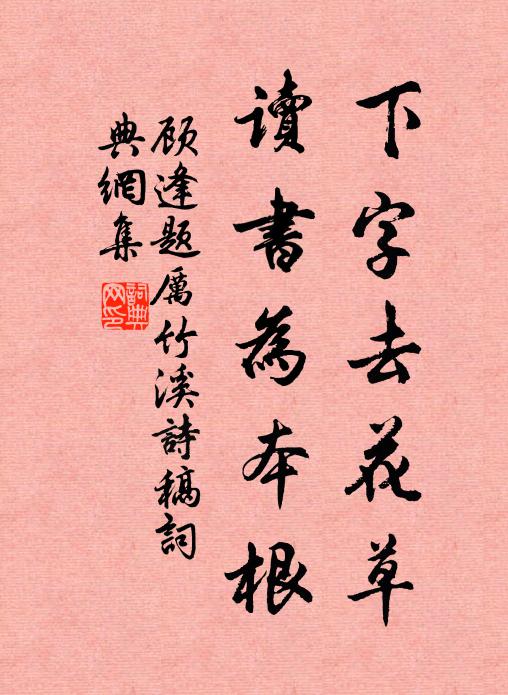 下字去花草
讀書為本根
顾逢题厲竹溪詩稿詞
典網集
詞典網印